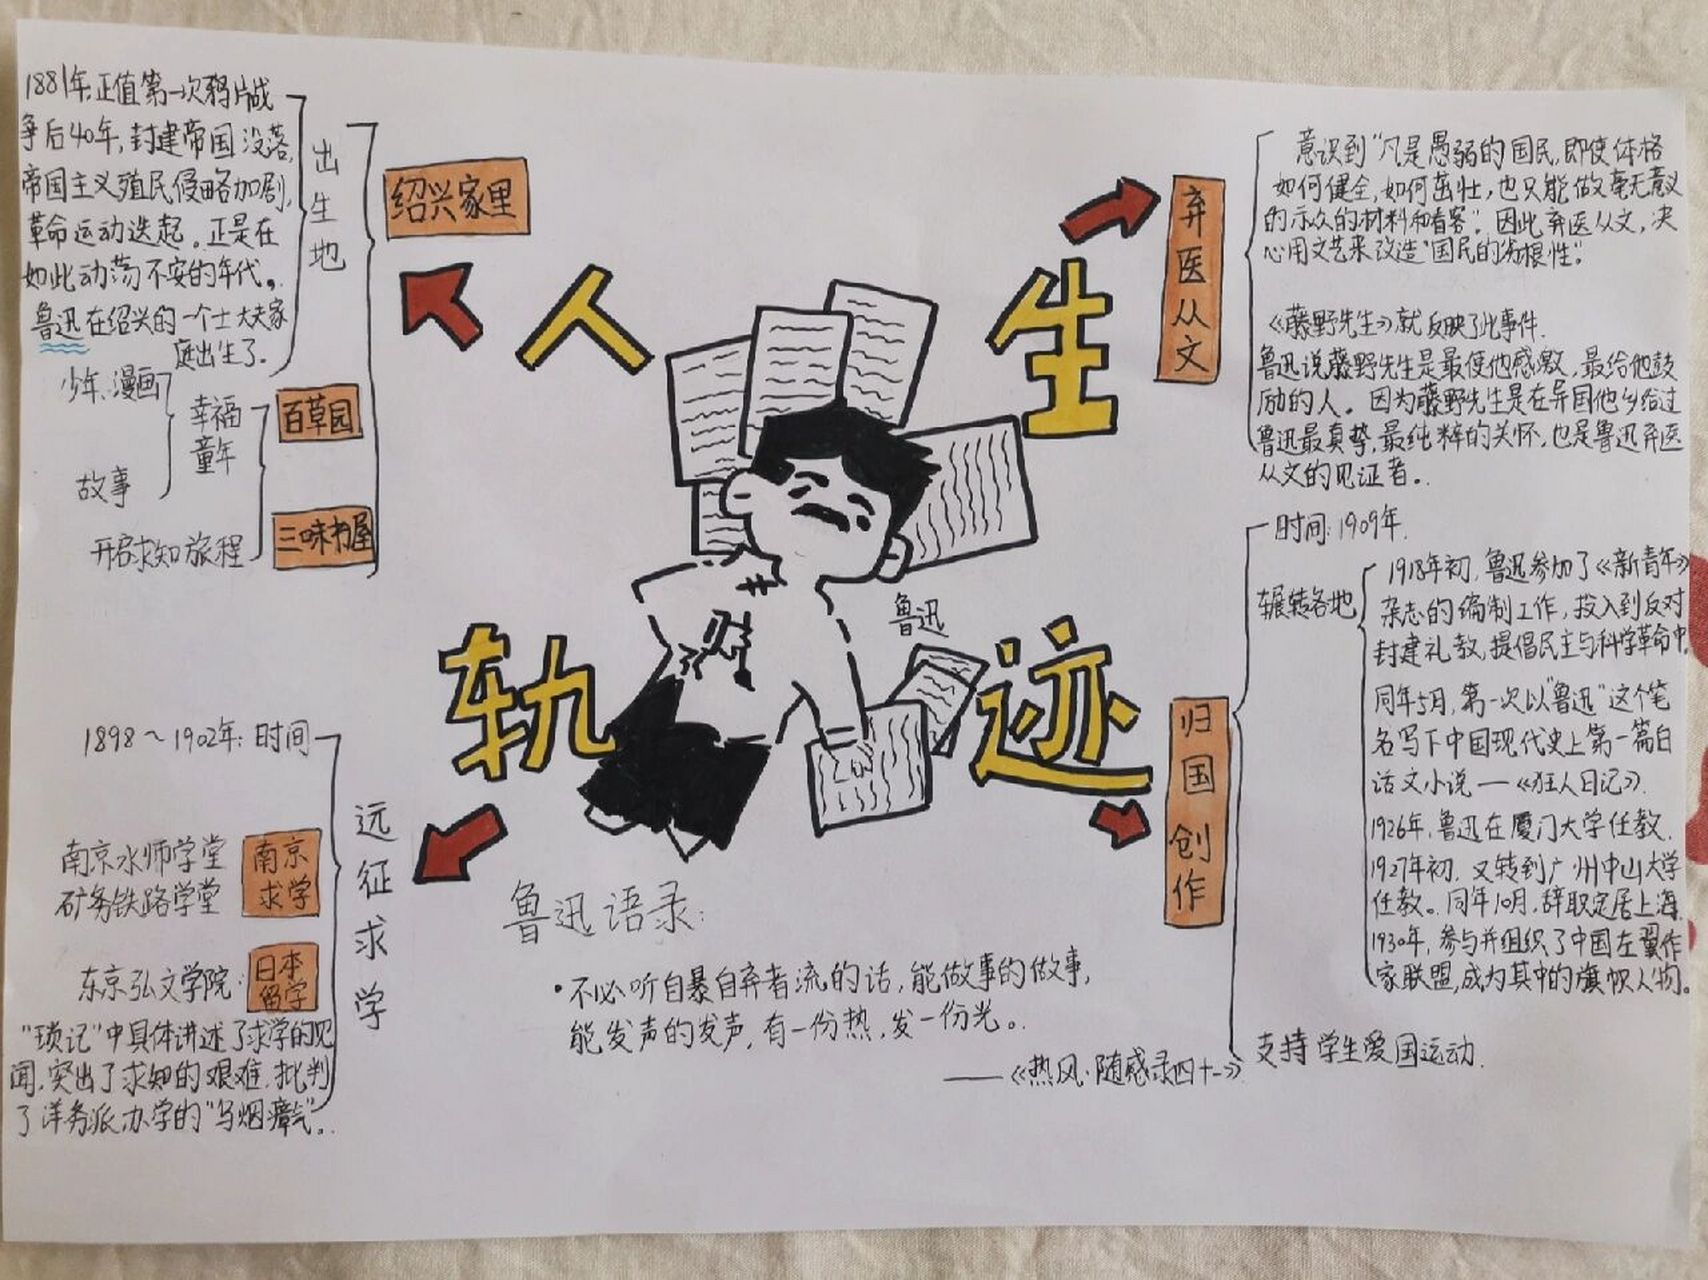 人生
轨迹
鲁迅
绍兴家里
出生地
1881年,正值第一次鸦片战
争后40年,封建帝国没落,
帝国主义殖民侵略加剧,
革命运动迭起。正是在
如此动荡不安的年代。
鲁迅在绍兴的一个士大夫家
庭出生了.
少年、漫画
故事
幸福
童年
百草园
开启求知旅程
三味书屋
远征求学
1898~1902年:时间
南京水师学堂
矿务铁路学堂
南京
求学
东京弘文学院:
日本
留学
"琐记"中具体讲述了求学的见
闻,突出了求知的艰难.批判
了洋务派办学的"乌烟瘴气".
弃医从文
意识到"凡是愚弱的国民,即使体格
如何健全,如何茁壮,也只能做毫无意义
的示众的材料和看客".因此弃医从文,决
心用文艺来改造"国民的劣根性".
《藤野先生》就反映了此事件.
鲁迅说藤野先生是最使他感激,最给他鼓
励的人。因为藤野先生是在异国他乡给过
鲁迅最真挚,最纯粹的关怀,也是鲁迅弃医
从文的见证者。
归国创作
时间:1909年.
辗转各地
1918年初,鲁迅参加了《新青年》
杂志的编制工作,投入到反对
封建礼教,提倡民主与科学革命中.
同年5月,第一次以"鲁迅"这个笔
名写下中国现代史上第一篇白
话文小说—《狂人日记》.
1926年,鲁迅在厦门大学任教.
1927年初,又转到广州中山大学
任教。同年10月,辞职定居上海.
1930年,参与并组织了中国左翼作
家联盟,成为其中的旗帜人物。
支持学生爱国运动.
鲁迅语录:
•不必听自暴自弃者流的话,能做事的做事,
能发声的发声,有一份热,发一份光。
——《热风·随感录四十一》